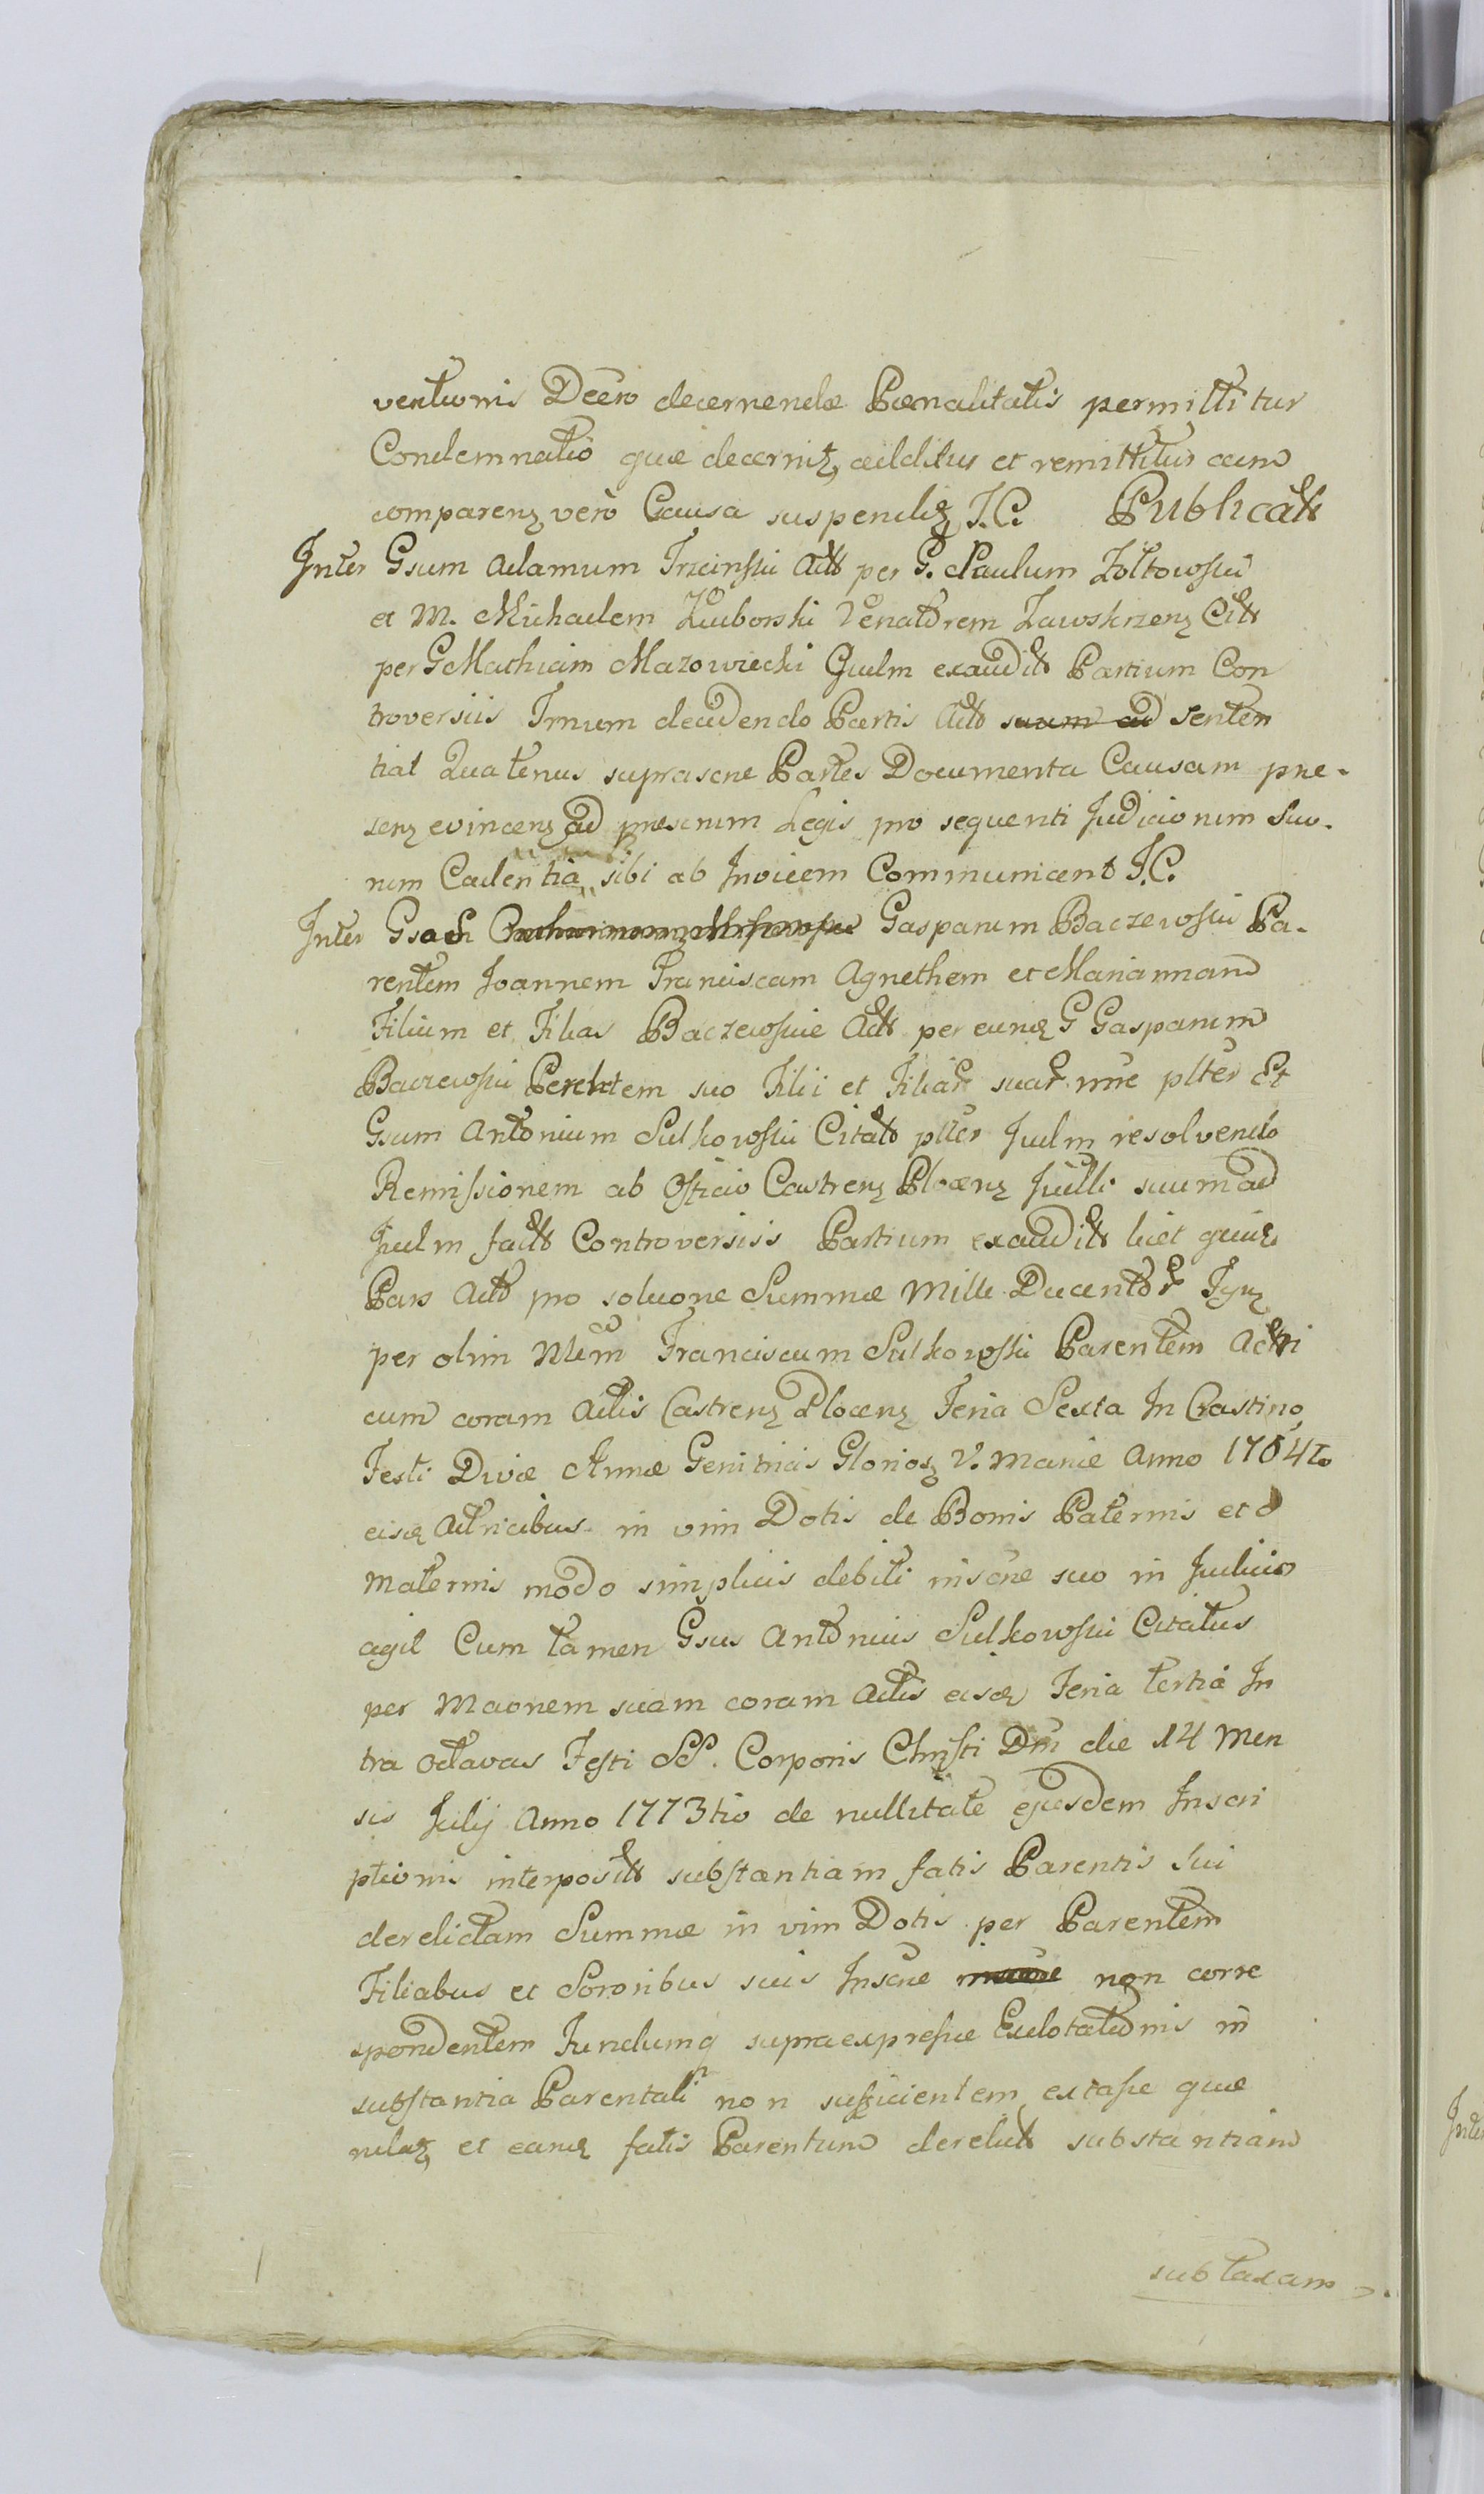 ventionis Decro decernendæ Pœnalitatis permittitur
Condemnatio quæ decernitz additus et remittitur cum
comparenz vero Causa suspenditz J.C. Publicatt
Inter Gsum Adamum Trzcinski Actt per G. Paulum Zołtowski
et M. Michaelem Zuiborski Venatorem Zawskrzenz Citt
per G Mathiam Mazowiecki Judm exauditt Partium Con
troversiis Irnum decidendo Partis Actt senten
tiat Quatenus suprascne Partes Documenta Causam præ-
senz evincenz ad præscrum Legis pro sequenti Judiciorum suo-
rum Cadentia sibi ab Invicem Communicent J.C.
Inter Gsos Gasparum Baczewski Pa-
rentem Joannem Franciscam Agnethem et Mariannam
Filium et Filias Baczewskie Actt per eundz G Gasparum
Baczewski Parentem suo Filii et Filiar suar nne plter Et
Gsum Antonium Sulkowski Citatt plter Judm resolvendo
Remissionem ab Officio Castrenz Plocenz Judlli suum ad
Judm factt Controversiis Partium exauditt licet quidz
Pars Actt pro solucone Summæ Mille Ducentor Tynz
per olim Mlem Franciscum Sulkowski Parentem Actti
cum coram Actis Castrenz Plocenz Feria Sexta In Crastino
Festi Divæ Annæ Genitricis Gloriosz V. Mariæ Anno 1764to
eisdz Actricibus in vim Dotis de Bonis Paternis et
Maternis modo simplicis debiti inscne suo in Judicio
agit Cum tamen Gsus Antonius Sulkowski Citatus
per Maonem suam coram Actis eisdz Feria tertia In
tra Octavas Festi SS. Corporis Christi Dni die 14 Men
sis Julij Anno 1773tio de nullitate ejusdem Inscri
ptionis interpositt substantiam fatis Parentis sui
derelictam Summæ in vim Dotis per Parentem
Filiabus et Sororibus suis Inscne non corre
spondentem Fundumq supraexpressæ Exdotationis in
substantia Parentali non sufficientem extasse quæ
rulatz et eandz fatis Parentum derelictt substantiam
sub taxam